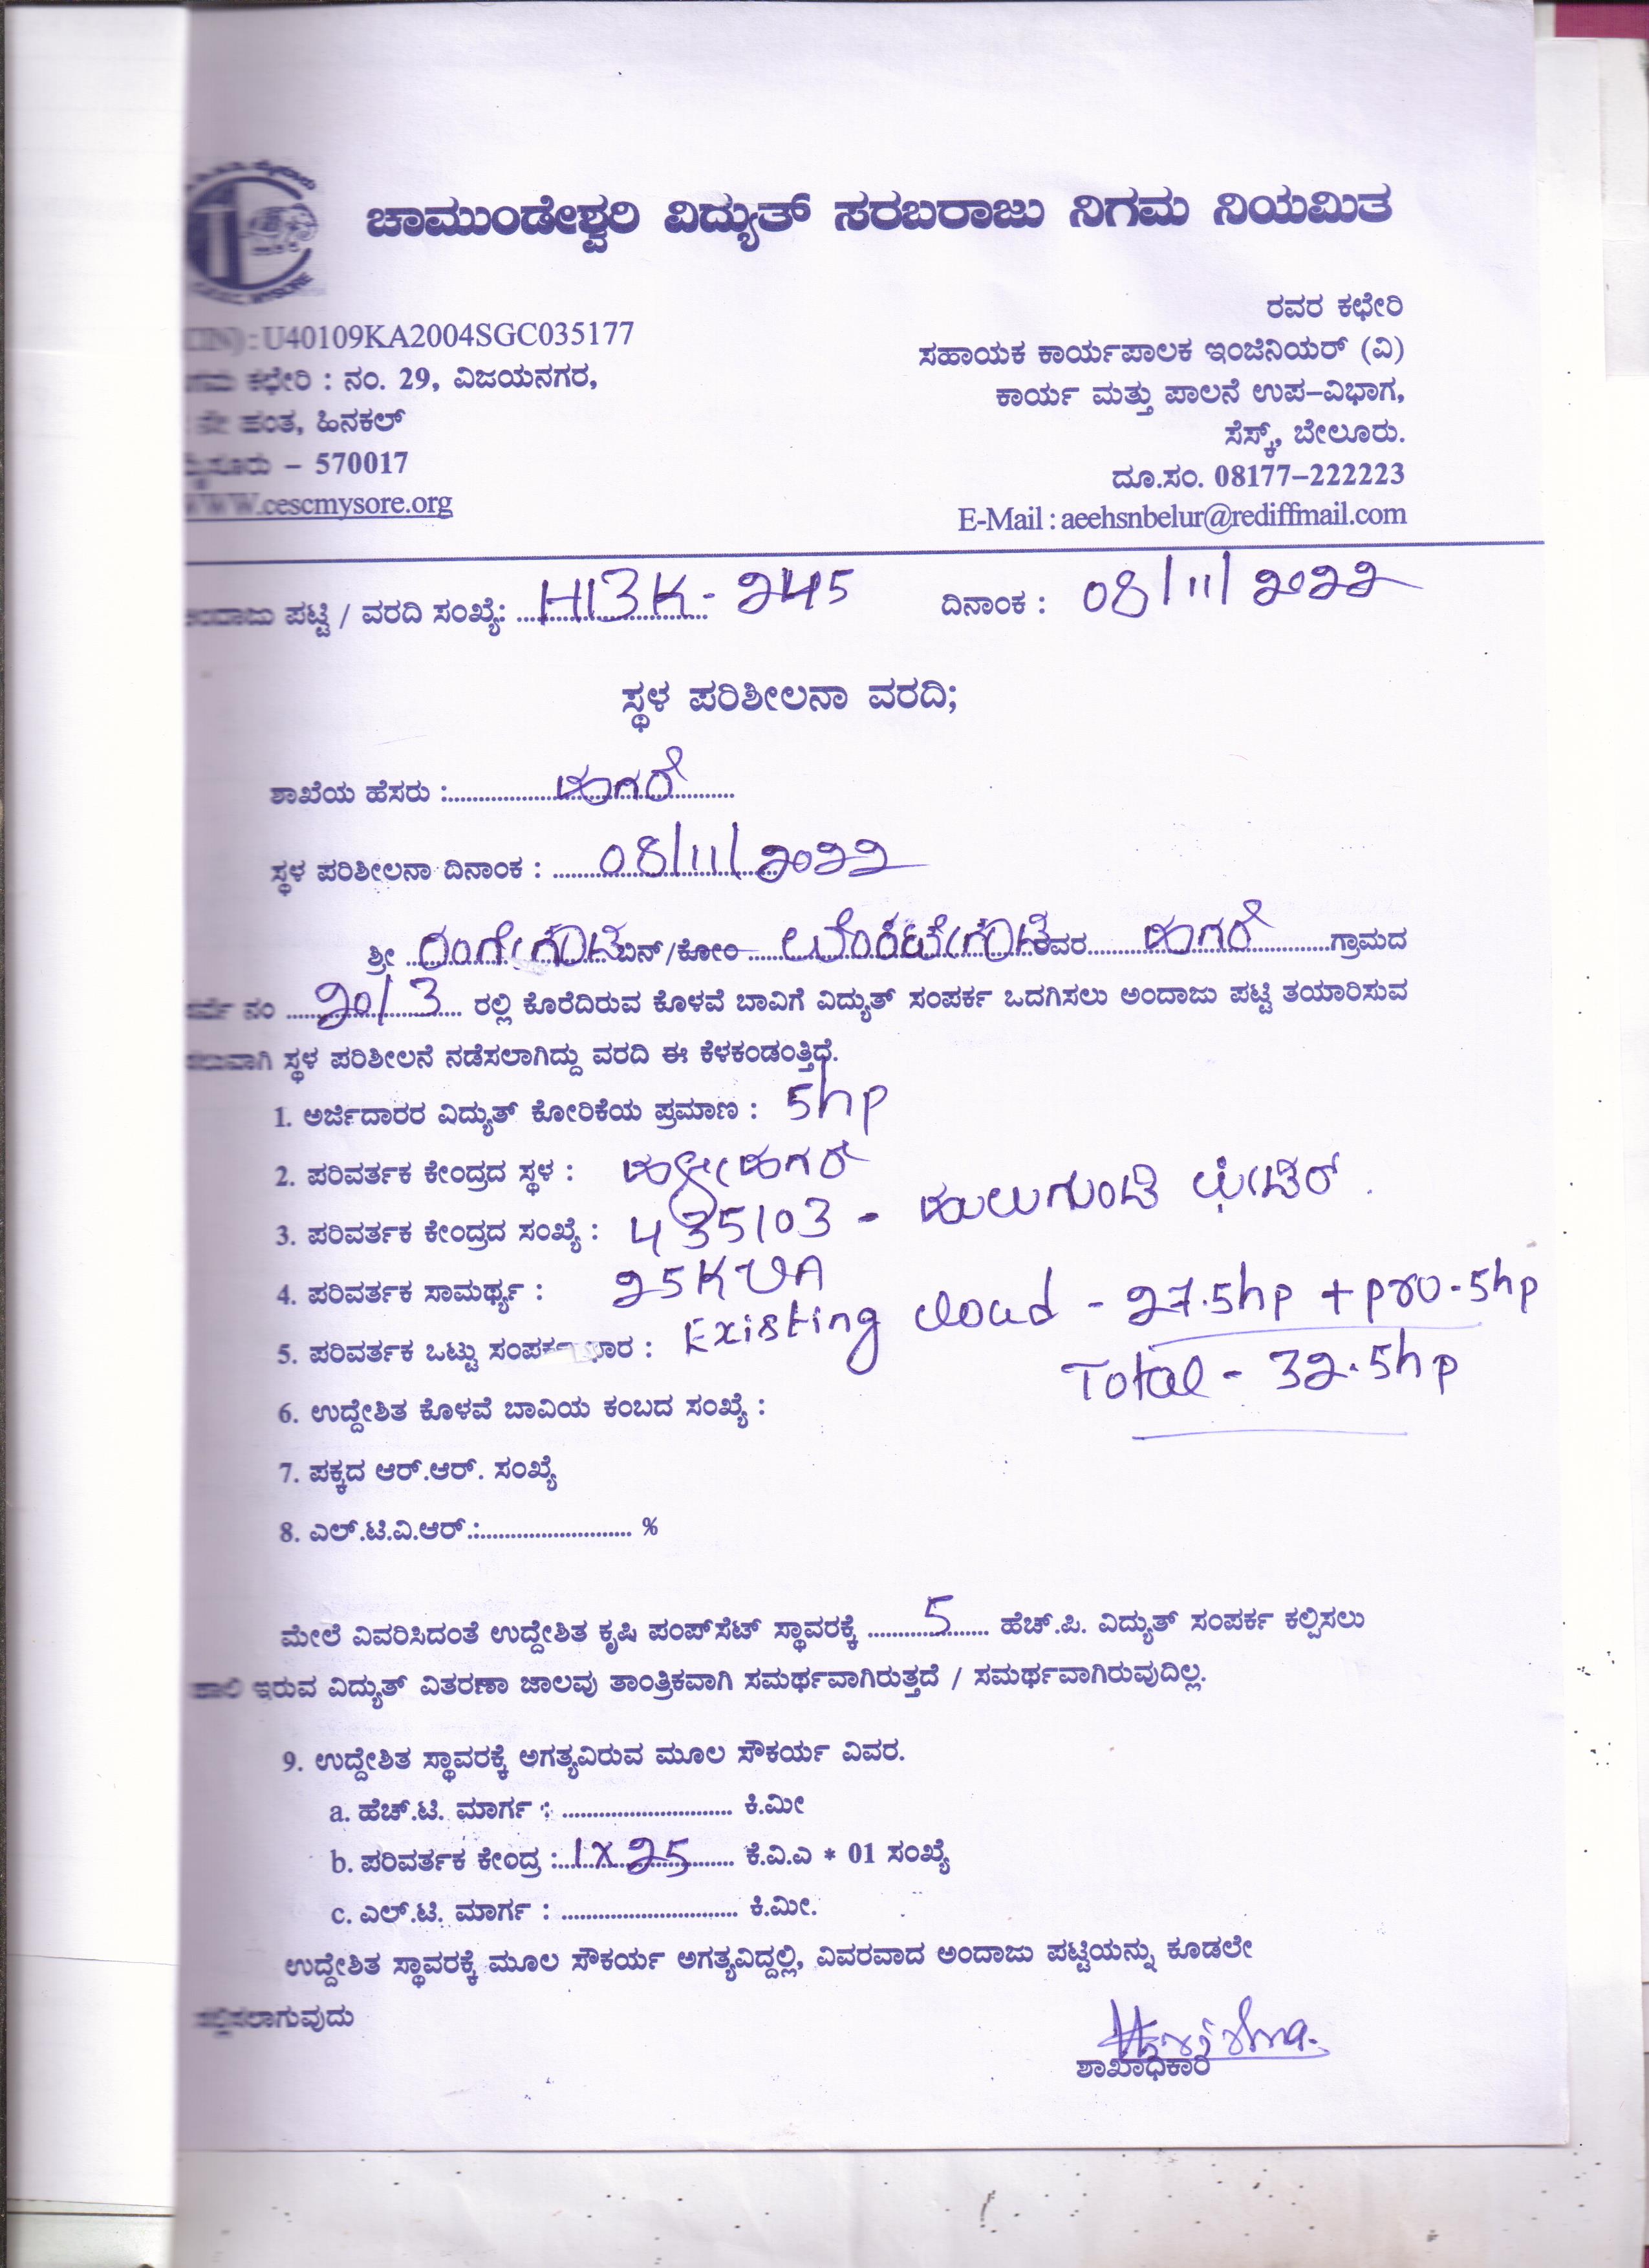 ಚಾಮುಂಡೇಶ್ವರಿ ವಿದ್ಯುತ್ ಸರಬರಾಜು ನಿಗಮ ನಿಯಮಿತ
MYSORE
: U40109KA2004SGC035177
ಕಛೇರಿ : ನಂ. 29, ವಿಜಯನಗರ,
ನೇ ಹಂತ, ಹಿನಕಲ್
ಮೈಸೂರು – 570017
WWW.cescmysore.org
ರವರ ಕಛೇರಿ
ಸಹಾಯಕ ಕಾರ್ಯಪಾಲಕ ಇಂಜಿನಿಯರ್ (ವಿ)
ಕಾರ್ಯ ಮತ್ತು ಪಾಲನೆ ಉಪ–ವಿಭಾಗ,
ಸೆಸ್ಕ್, ಬೇಲೂರು.
ದೂ.ಸಂ. 08177–222223
E-Mail : aeehsnbelur@rediffmail.com
ಅಂದಾಜು ಪಟ್ಟಿ / ವರದಿ ಸಂಖ್ಯೆ: H13K - 245 ದಿನಾಂಕ : 08/11/2022
ಸ್ಥಳ ಪರಿಶೀಲನಾ ವರದಿ;
ಶಾಖೆಯ ಹೆಸರು : ಹಗರೆ
ಸ್ಥಳ ಪರಿಶೀಲನಾ ದಿನಾಂಕ : 08/11/2022
ಶ್ರೀ ರಂಗೇಗೌಡ ಬಿನ್/ಕೋಂ ರವರ ಹಗರೆ ಗ್ರಾಮದ
ಸರ್ವೆ ನಂ 20/3 ರಲ್ಲಿ ಕೊರೆದಿರುವ ಕೊಳವೆ ಬಾವಿಗೆ ವಿದ್ಯುತ್ ಸಂಪರ್ಕ ಒದಗಿಸಲು ಅಂದಾಜು ಪಟ್ಟಿ ತಯಾರಿಸುವ
ಸಲುವಾಗಿ ಸ್ಥಳ ಪರಿಶೀಲನೆ ನಡೆಸಲಾಗಿದ್ದು ವರದಿ ಈ ಕೆಳಕಂಡಂತ್ತಿದೆ.
1. ಅರ್ಜಿದಾರರ ವಿದ್ಯುತ್ ಕೋರಿಕೆಯ ಪ್ರಮಾಣ : 5hp
2. ಪರಿವರ್ತಕ ಕೇಂದ್ರದ ಸ್ಥಳ :
3. ಪರಿವರ್ತಕ ಕೇಂದ್ರದ ಸಂಖ್ಯೆ : 435103 - ಹುಲುಗುಂಡಿ ಫೀಡರ್.
4. ಪರಿವರ್ತಕ ಸಾಮರ್ಥ್ಯ : 25KVA
5. ಪರಿವರ್ತಕ ಒಟ್ಟು ಸಂಪರ್ಕ ಭಾರ : Existing load - 27.5hp + pro - 5hp
Total - 32.5hp
6. ಉದ್ದೇಶಿತ ಕೊಳವೆ ಬಾವಿಯ ಕಂಬದ ಸಂಖ್ಯೆ :
7. ಪಕ್ಕದ ಆರ್.ಆರ್. ಸಂಖ್ಯೆ
8. ಎಲ್.ಟಿ.ವಿ.ಆರ್.:.......................... %
ಮೇಲೆ ವಿವರಿಸಿದಂತೆ ಉದ್ದೇಶಿತ ಕೃಷಿ ಪಂಪ್‌ಸೆಟ್ ಸ್ಥಾವರಕ್ಕೆ 5 ಹೆಚ್.ಪಿ. ವಿದ್ಯುತ್ ಸಂಪರ್ಕ ಕಲ್ಪಿಸಲು
ಹಾಲಿ ಇರುವ ವಿದ್ಯುತ್ ವಿತರಣಾ ಜಾಲವು ತಾಂತ್ರಿಕವಾಗಿ ಸಮರ್ಥವಾಗಿರುತ್ತದೆ / ಸಮರ್ಥವಾಗಿರುವುದಿಲ್ಲ.
9. ಉದ್ದೇಶಿತ ಸ್ಥಾವರಕ್ಕೆ ಅಗತ್ಯವಿರುವ ಮೂಲ ಸೌಕರ್ಯ ವಿವರ.
a. ಹೆಚ್.ಟಿ. ಮಾರ್ಗ : ............................ ಕಿ.ಮೀ
b. ಪರಿವರ್ತಕ ಕೇಂದ್ರ : 1 X 25 ಕೆ.ವಿ.ಎ * 01 ಸಂಖ್ಯೆ
c. ಎಲ್.ಟಿ. ಮಾರ್ಗ : ............................. ಕಿ.ಮೀ.
ಉದ್ದೇಶಿತ ಸ್ಥಾವರಕ್ಕೆ ಮೂಲ ಸೌಕರ್ಯ ಅಗತ್ಯವಿದ್ದಲ್ಲಿ, ವಿವರವಾದ ಅಂದಾಜು ಪಟ್ಟಿಯನ್ನು ಕೂಡಲೇ
ಸಲ್ಲಿಸಲಾಗುವುದು
ಶಾಖಾಧಿಕಾರಿ